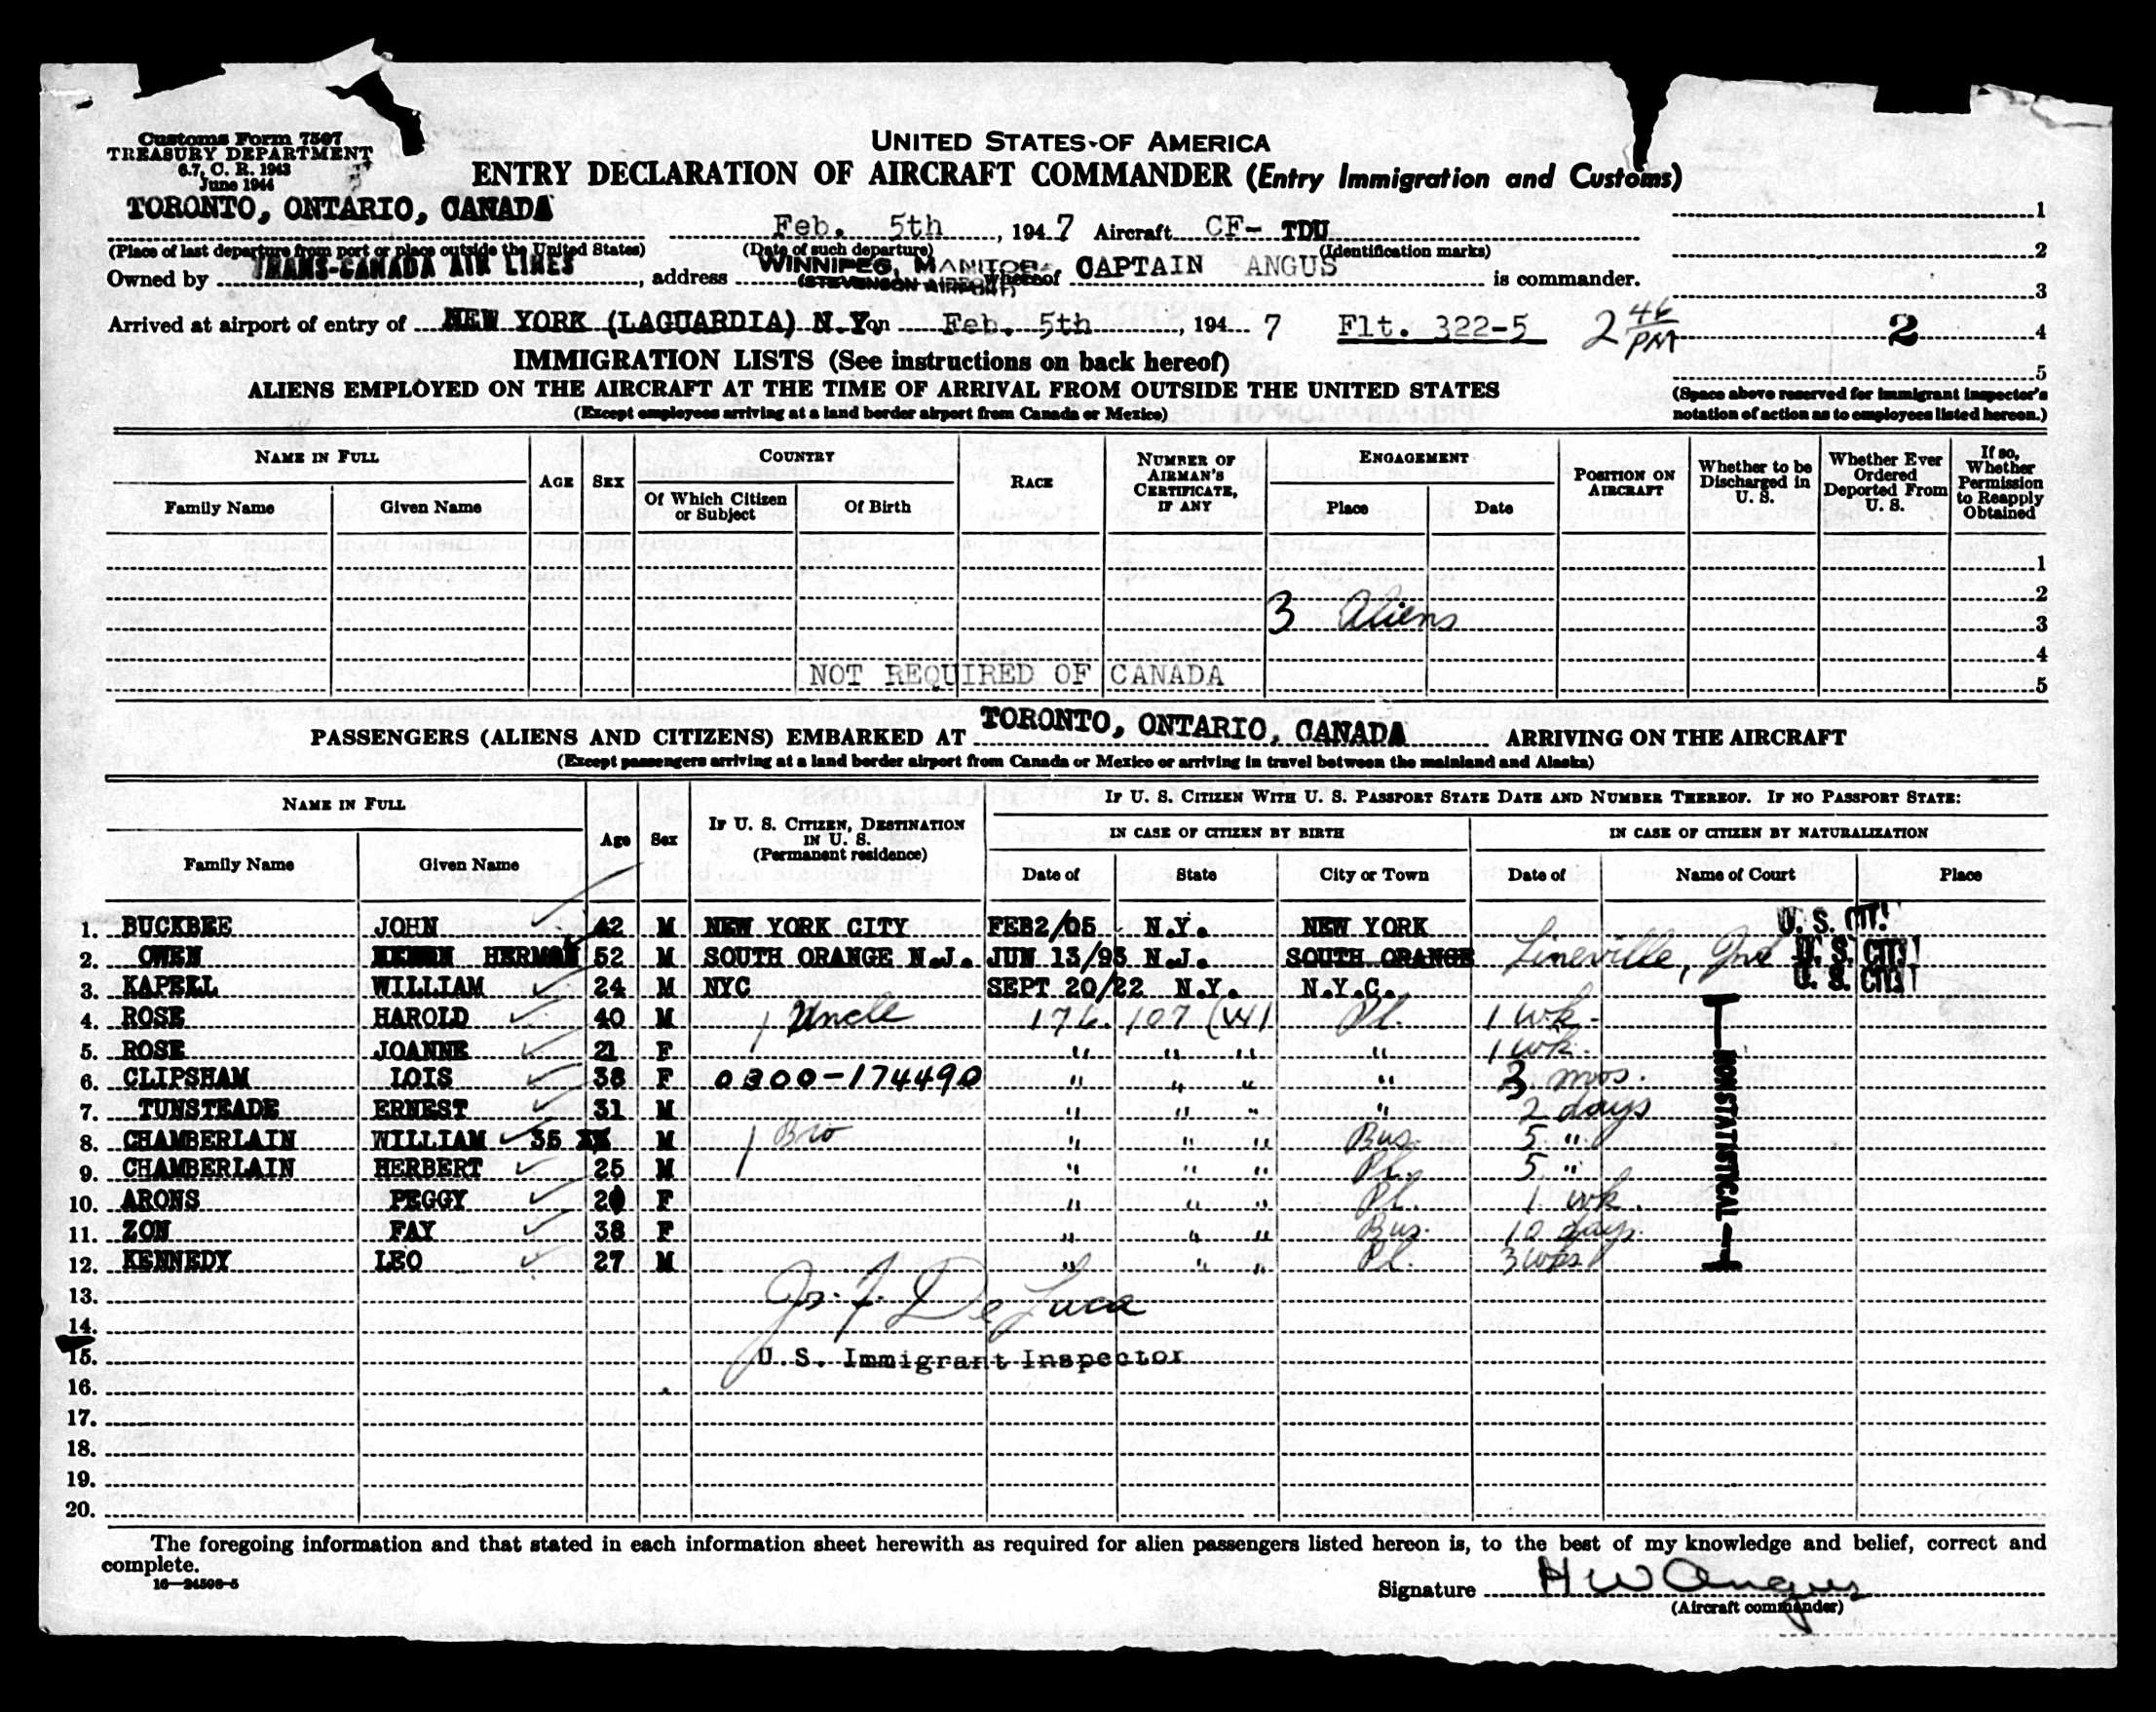 Customs Form 7507
TREASURY DEPARTMENT
6.7, C. R. 1943
June 1944
UNITED STATES OF AMERICA
ENTRY DECLARATION OF AIRCRAFT COMMANDER (Entry Immigration and Customs)
TORONTO, ONTARIO, CANADA Feb. 5th, 1947 Aircraft CF- TDU 1
(Place of last departure from port or place outside the United States) (Date of such departure) (Identification marks) 2
Owned by TRANS-CANADA AIR LINES, address WINNIPEG, MANITOBA (STEVENSON AIRPORT) whereof CAPTAIN ANGUS is commander. 3
Arrived at airport of entry of NEW YORK (LAGUARDIA) N.Y. on Feb. 5th, 1947 Flt. 322-5 2 46 PM 2 4
5
IMMIGRATION LISTS (See instructions on back hereof)
ALIENS EMPLOYED ON THE AIRCRAFT AT THE TIME OF ARRIVAL FROM OUTSIDE THE UNITED STATES
(Except employees arriving at a land border airport from Canada or Mexico)
(Space above reserved for immigrant inspector's
notation of action as to employees listed hereon.)
NAME IN FULL AGE SEX COUNTRY RACE NUMBER OF AIRMAN'S CERTIFICATE, IF ANY ENGAGEMENT POSITION ON AIRCRAFT Whether to be Discharged in U. S. Whether Ever Ordered Deported From U. S. If so, Whether Permission to Reapply Obtained
Family Name Given Name Of Which Citizen or Subject Of Birth Place Date
1
2
3 Aliens 3
4
NOT REQUIRED OF CANADA 5
PASSENGERS (ALIENS AND CITIZENS) EMBARKED AT TORONTO, ONTARIO, CANADA ARRIVING ON THE AIRCRAFT
(Except passengers arriving at a land border airport from Canada or Mexico or arriving in travel between the mainland and Alaska)
NAME IN FULL Age Sex IF U. S. CITIZEN, DESTINATION IN U. S. (Permanent residence) IF U. S. CITIZEN WITH U. S. PASSPORT STATE DATE AND NUMBER THEREOF. IF NO PASSPORT STATE:
IN CASE OF CITIZEN BY BIRTH IN CASE OF CITIZEN BY NATURALIZATION
Family Name Given Name Date of State City or Town Date of Name of Court Place
1. BUCKBEE JOHN 42 M NEW YORK CITY FEB2/05 N.Y. NEW YORK U. S. CIT!
2. OWEN HERMAN 52 M SOUTH ORANGE N.J. JUN 13/95 N.J. SOUTH ORANGE Lineville, Ind U. S. CIT!
3. KAPELL WILLIAM 24 M NYC SEPT 20/22 N.Y. N.Y.C. U. S. CIT!
4. ROSE HAROLD 40 M Uncle 176. 107 (W) Pl. 1 wk.
5. ROSE JOANNE 21 F " " " " 1 wk.
6. CLIPSHAM LOIS 38 F 0300-174490 " " " " 3 mos.
7. TUNSTEADE ERNEST 31 M " " " " 2 days
8. CHAMBERLAIN WILLIAM 35 M Bro " " " Bus. 5 "
9. CHAMBERLAIN HERBERT 25 M " " " Pl. 5 "
10. ARONS PEGGY 20 F " " " Pl. 1 wk.
11. ZON FAY 38 F " " " Bus. 10 days.
12. KENNEDY LEO 27 M " " " Pl. 3 wks
NONSTATISTICAL
13.
14. Jos. F. De Luca
15. U. S. Immigrant Inspector
16.
17.
18.
19.
20.
The foregoing information and that stated in each information sheet herewith as required for alien passengers listed hereon is, to the best of my knowledge and belief, correct and
complete.
16—24598-5
Signature H W Angus
(Aircraft commander)